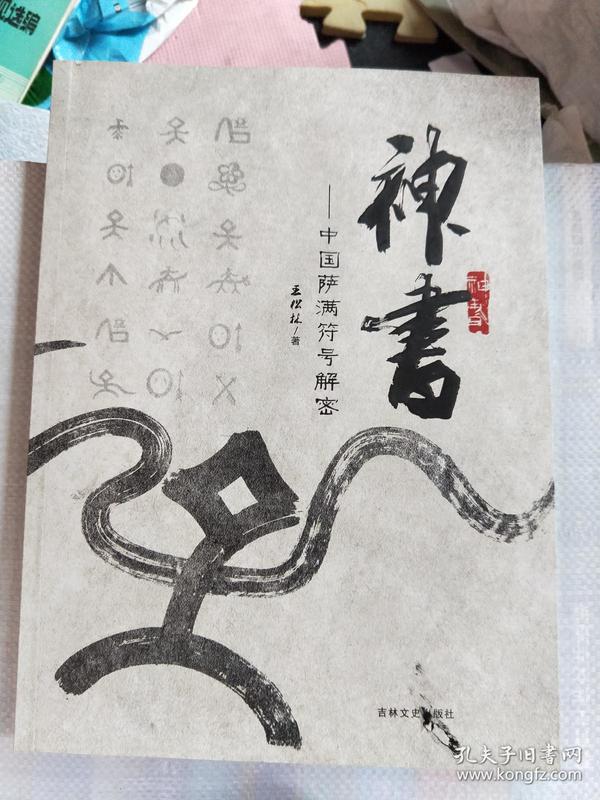 神書
神書
——中国萨满符号解密
/著
吉林文史出版社
见选编
孔夫子旧书网
www.kongfz.com